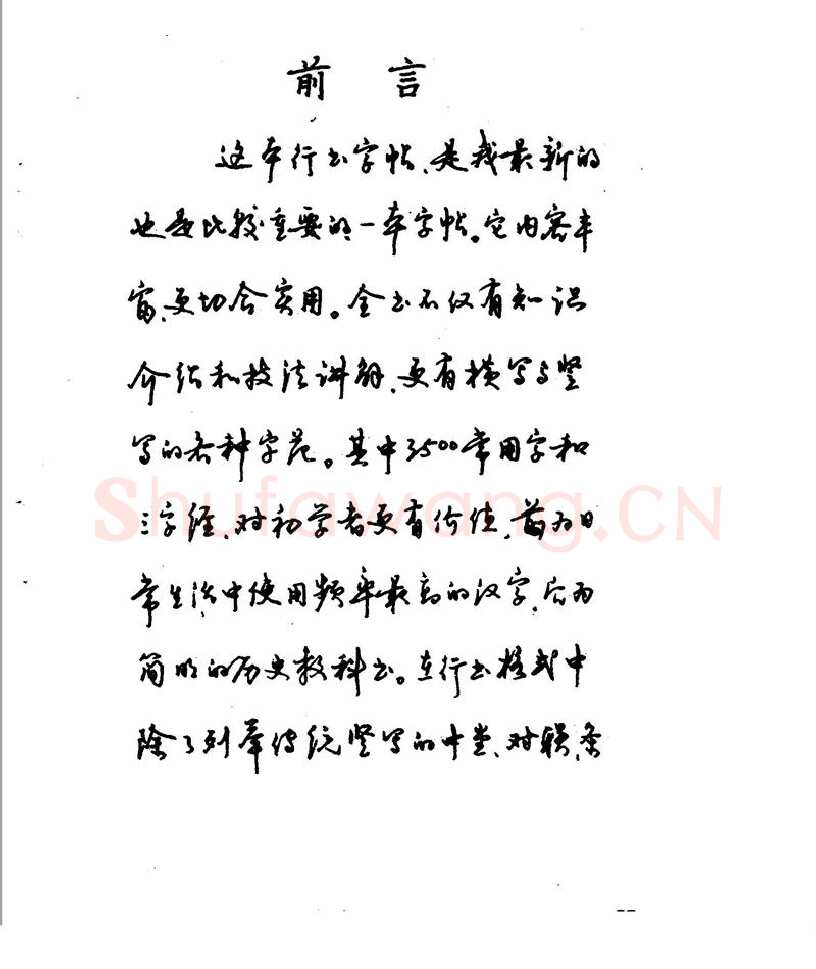 前 言
这本行书字帖,是我最新的
也是比较重要的一本字帖。它内容丰
富,更切合实用。全书不仅有知识
介绍和技法讲解,更有横写与竖
写的各种字范。其中3500常用字和
三字经,对初学者更有价值,前为日
Shufawang.CN
常生活中使用频率最高的汉字,后为
简明的历史教科书。在行书格式中
除了列举传统竖写的中堂、对联、条